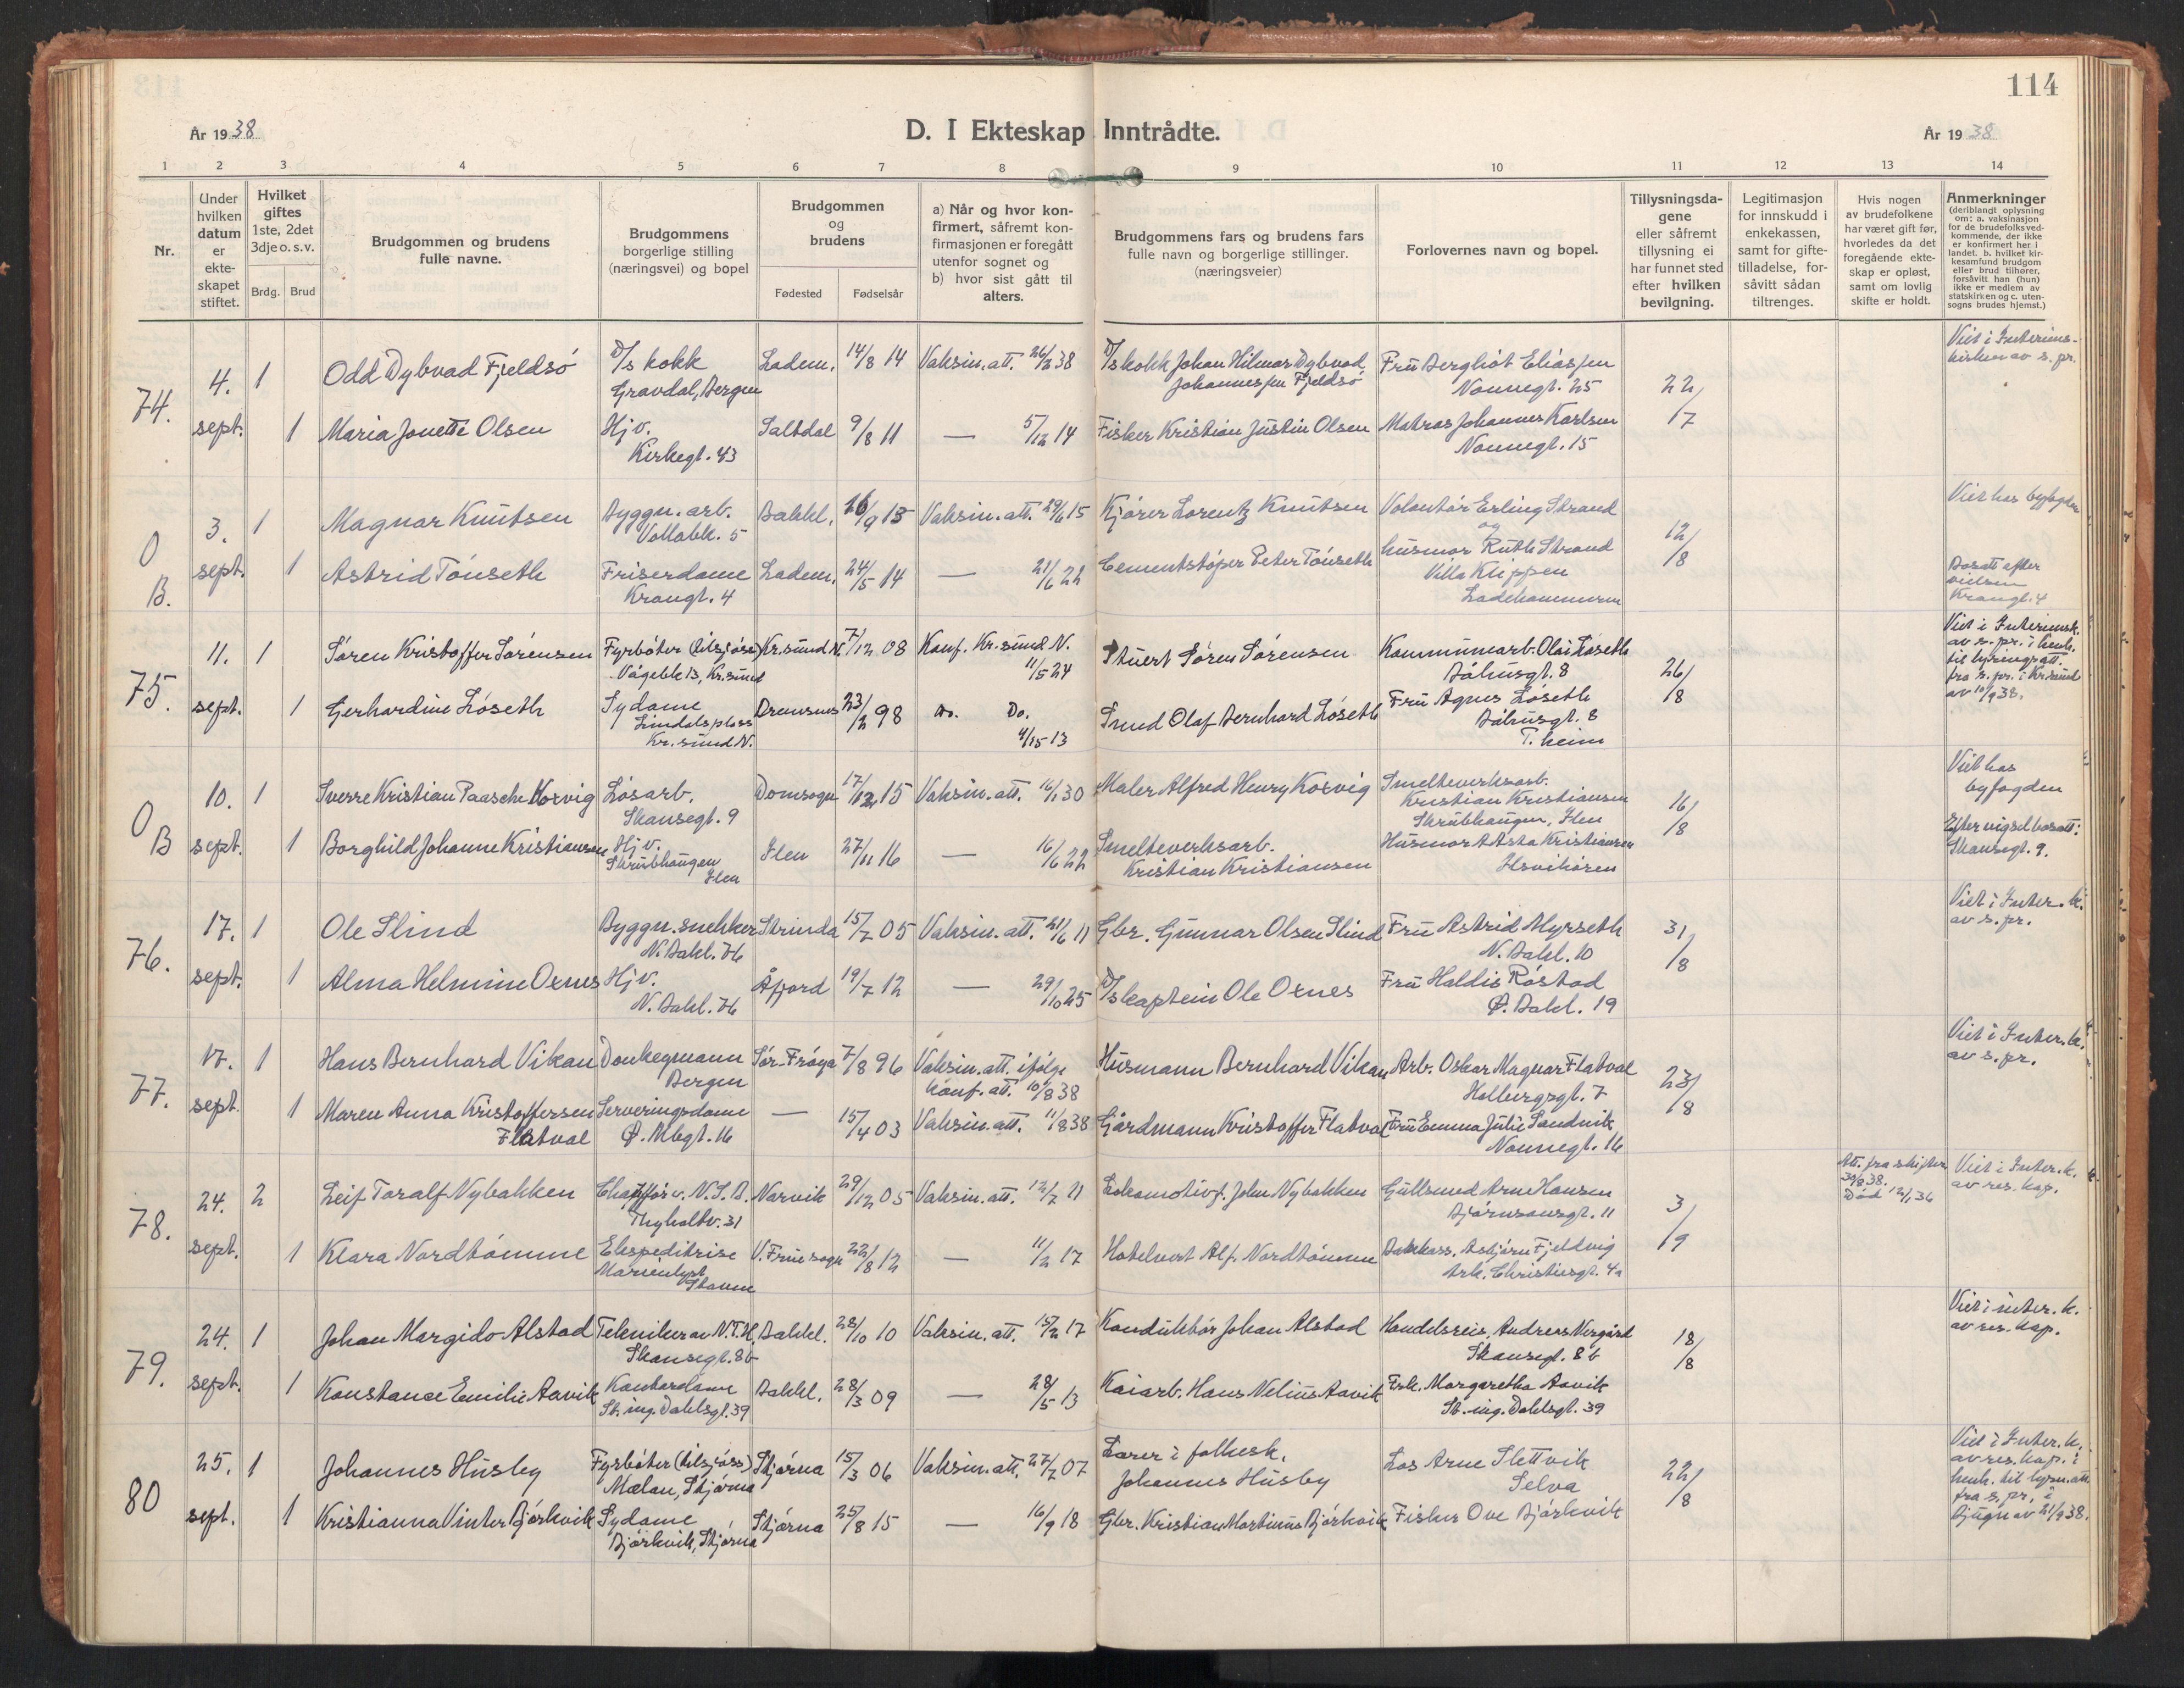 114
År 1938
D. I Ekteskap Inntrådte.
År 1938
1 2 3 4 5 6 7 8 9 10 11 12 13 14
Nr.
Under hvilken datum er ekteskapet stiftet.
Hvilket giftes 1ste, 2det 3dje o. s. v.
Brdg. Brud
Brudgommen og brudens fulle navne.
Brudgommens borgerlige stilling (næringsvei) og bopel
Brudgommen og brudens
Fødested Fødselsår
a) Når og hvor konfirmert, såfremt konfirmasjonen er foregått utenfor sognet og b) hvor sist gått til alters.
Brudgommens fars og brudens fars fulle navn og borgerlige stillinger. (næringsveier)
Forlovernes navn og bopel.
Tillysningsdagene eller såfremt tillysning ei har funnet sted efter hvilken bevilgning.
Legitimasjon for innskudd i enkekassen, samt for giftetilladelse, forsåvitt sådan tiltrenges.
Hvis nogen av brudefolkene har været gift før, hvorledes da det foregående ekteskap er opløst, samt om lovlig skifte er holdt.
Anmerkninger (deriblandt oplysning om: a. vaksinasjon for de brudefolks vedkommende, der ikke er konfirmert her i landet. b. hvilket kirkesamfund brudgom eller brud tilhører, forsåvitt han (hun) ikke er medlem av statskirken og c. utensogns brudes hjemst.)
74. 4. sept.
1 Odd Dybvad Fjeldsö D/s kokk Gravdal, Bergen Ladem. 14/8 14 Vaksin. att. 26/2 38 D/s kokk Johan Hilmar Dybvad Johannessen Fjeldsö Fru Bergliot Eliassen Nonnegt. 25 22/17 Viet i Interims-kirken av s. pr.
1 Maria Jonette Olsen Hjv. Kirkegt. 43 Saltdal 9/8 11 — 5/12 14 Fisker Kristian Justin Olsen Matros Johannes Karlsen Nonnegt. 15
O B. 3. sept.
1 Magnar Knutsen Byggn. arb. Vollabk. 5 Bakkl. 16/9 13 Vaksin. att. 29/6 15 Kjörer Lorentz Knutsen Volontör Erling Strand og 12/8 Viet hos byfogden
1 Astrid Tönseth Friserdame Krangt. 4 Ladem. 24/5 14 — 21/6 22 Cementstöper Peter Tönseth husmor Ruth Strand Villa Klippen Ladehammeren Bosatt efter vielsen Krangt. 4
75. 11. sept.
1 Sören Kristoffer Sörensen Fyrböter (tilsjös) Vågebk 13, Kr.sund Kr.sund N. 7/12 08 Konf. Kr.sund N. 11/5 24 Stuert Sören Sörensen Kommunearb. Olai Löseth Båhusgt. 8 26/8 Viet i Interimsk. av s. pr. i henh. til lysningsatt. fra s. pr. i Kr.sund av 10/9 38.
1 Gerhardine Löseth Sydame Lindalsplass Kr.sund N. Bremsnes 23/2 98 Do. Do. 4/5 13 Smed Olaf Bernhard Löseth Fru Agnes Löseth Båhusgt. 8 T.heim
O B 10. sept.
1 Sverre Kristian Paasche Korvig Lösarb. Skansegt. 9 Domsogn 17/12 15 Vaksin. att. 16/1 30 Maler Alfred Henry Korvig Smelteverksarb. Kristian Kristiansen Skrubhaugen, Ilen 16/8 Viet hos byfogden
1 Borghild Johanne Kristiansen Hjv. Skrubhaugen Ilen Ilen 27/11 16 — 16/6 22 Smelteverksarb. Kristian Kristiansen Husmor Asta Kristiansen Ilsvikören Efter vigsel bosatt: Skansegt. 9.
76. 17. sept.
1 Ole Slind Byggn. snekker N. Bakl. 76 Strinda 15/7 05 Vaksin. att. 21/6 11 Gbr. Gunnar Olsen Slind Fru Astrid Myrseth N. Bakl. 10 31/8 Viet i Inter. k. av s. pr.
1 Alma Helmine Oxnes Hjv. N. Bakl. 76 Åfjord 19/7 12 — 29/10 25 D/s kaptein Ole Oxnes Fru Haldis Röstad Ø. Bakl. 19
77. 17. sept.
1 Hans Bernhard Vikan Donkeymann Bergen Sör-Fröya 7/8 96 Vaksin. att. ifölge konf. att. 10/8 38 Husmann Bernhard Vikan Arb. Oskar Magnar Flatval Holbergsgt. 7 23/8 Viet i Inter. k. av s. pr.
1 Maren Anna Kristoffersen Flatval Serveringsdame Ø. Mbgt. 16 — 15/4 03 Vaksin. att. 11/8 38 Gårdmann Kristoffer Flatval Fru Emma Julie Sandvik Nonnegt. 16
78. 24. sept.
2 Leif Toralf Nybakken Chafför v. N.S.B. Thyholtv. 31 Narvik 29/12 05 Vaksin. att. 12/7 11 Lokomotivf. John Nybakken Gullsmed Arne Hansen Björnsonsgt. 11 3/9 Att. fra skifter. 30/8 38. Död 12/1 36 Viet i Inter. k. av res. kap.
1 Klara Nordtömme Ekspeditrise Marienlyst Stavne V. Frue sogn 22/8 12 — 11/2 17 Hotelvert Alf Nordtömme Bakkass. Asbjörn Fjeldvig Ark. Christiesgt. 4a
79. 24. sept.
1 Johan Margido Alstad Tekniker av N.T.H. Skansegt. 8b Bakkl. 28/10 10 Vaksin. att. 15/2 17 Konduktör Johan Alstad Handelsreis. Andreas Vergård Skansegt. 8b 18/8 Viet i inter. k. av res. kap.
1 Konstance Emilie Aavik Kontordame St. ing. Dahlsgt. 39 Bakkl. 28/3 09 — 28/5 13 Kaiarb. Hans Nelius Aavik Frk. Margaretha Aavik St. ing. Dahlsgt. 39
80 25. sept.
1 Johannes Husby Fyrböter (tilsjöss) Mælan, Stjörna Stjörna 15/3 06 Vaksin. att. 27/7 07 Lærer i folkesk. Johannes Husby Los Arne Slettvik Selva 22/8 Viet i Inter. k. av res. kap. i henh. til lysn. att. fra s. pr. i Bjugn av 21/9 38.
1 Kristianna Vinter Björkvik Sydame Björkvik, Stjörna Stjörna 25/8 15 — 16/9 18 Gbr. Kristian Martinus Björkvik Fisker Ove Björkvik